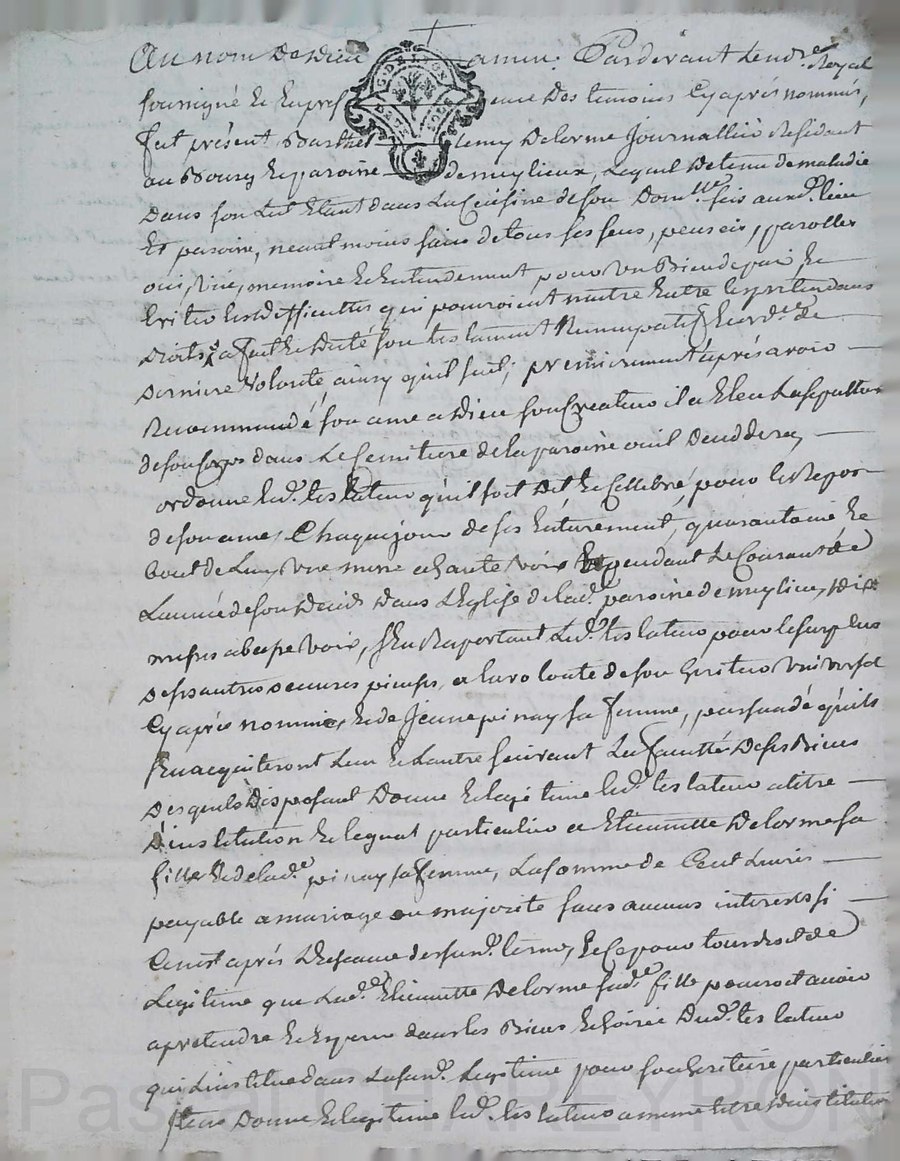 Au nom de Dieu amen. Pardevant le no.re Royal
soussigné et en pres ence des temoins cy aprés nommés,
fut présent Barthel lemy Delorme Journallier Residant
au Bourg et paroisse de mylieux, Lequel detenu de maladie
dans son Lit Etant dans la Cuisine de son Dom.lle sis aux d. lieu
et paroisse, neantmoins sain de tous ses sens, penseés, parolles
ouie, vüe, memoire et entendement pour un Bien de paix et
Eviter les difficultés qui pouroient naitre Entre les pretendans
droits a fait et dicté son testament Nuncupatif et ord.ce de
derniere volonté, ainsy qu'il suit; premierement aprés avoir
Recommandé son ame a Dieu son Createur il a Eleu La sepulture
de son Corps dans Le Cemitiere de la paroisse ou il decedera,
ordonne led. testateur qu'il soit dit et Cellebré pour le Repos
de son ame, Chaque jour de ses Enterrement, quarantaine et
bout de L'an, une messe a haute voix et pendant Le Courant de
L'année de son deceds dans L'Eglise de lad. paroisse de mylieu, dix
messes a basse voix, s'En Raportant Led. testateur pour le surplus
de ses autres oeuvres pieuses, a la volonté de son heritier universel
Cy aprés nommé, et de Jeanne pinay sa femme, persuadé qu'ils
s'En acquiteront L'un et L'autre suivant La faculté de ses Biens
desquels disposant donne et legitime led. testateur a titre
d'institution et legat particulier a Etiennette Delorme sa
fille et de lad.e pinay sa femme, La somme de Cent Livres
payable a mariage ou majorité sans aucuns interests si
Ce n'est aprés L'Echeance desusd. terme, et Ce pour tous droit de
Legitime que Lad.e Etiennette Delorme sad.e fille pouroit avoir
a pretendre et Esperer dans les Biens et hoirie dud. testateur
qui L'institue dans La susd. Legitime pour son heritiere particulier
Item donne et legitime led. testateur a meme titre d'institution
G. DE LYON
Pascal CHAREYRON